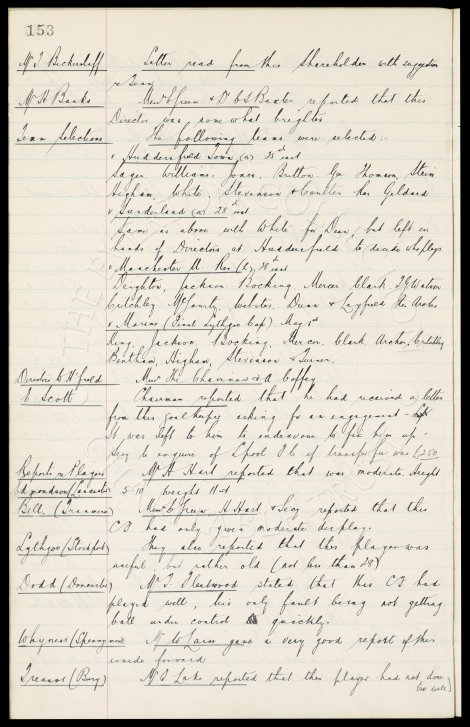 153
Mr J Bickerstaff Letter read from this Shareholder with suggestion
re Team
Mr H Banks Messrs E Green & D C S Baxter reported that this
Director was somewhat brighter
Team Selections The following teams were selected:-
v Huddersfield Town (a) 25th inst
Sager. Williams. Jones. Britton. Gee Thomson. Stein
Higham. White. Stevenson & Coulter Res Geldard
v Sunderland (a) 28th inst
Same as above with White for Dean, but left in
hands of Directors at Huddersfield to decide who plays
v Manchester U. Res (h) 28th inst
Deighton, Jackson Bocking. Mercer. Clark. T G Watson
Critchley McGourty, Webster, Dunn & Leyfield Res Archer
v Marine (Final Lythgoe Cap) May 1st
King. Jackson. Bocking. Mercer. Clark. Archer. Critchley
Bentham, Higham, Stevenson & Turner.
Directors to H'field Messrs The Chairman & A Coffey
E. Scott Chairman reported that he had received a letter
from this goalkeeper asking for an engagement
It was left to him to endeavour to fix him up
Secy to enquire of L'pool F C if transfer fee was £250
Reports re Players Mr A Hart reported that was moderate. Height
Edmondson (Leicester) 5-10 weight 11 st
Bell. (Tranmere) Messrs E Green A Hart & Secy reported that this
C F had only given moderate display.
Lythgoe (Stockport) They also reported that this player was
useful, but rather old (not less than 28)
Dodd (Doncaster) Mr J Fleetwood stated that this C F had
played well, his only fault being not getting
ball under control quickly.
Whyness (Spennymoor) Mr W Lane gave a very good report of this
inside forward
Treanor (Bury) Mr S Lake reported that this player had not done
too well)